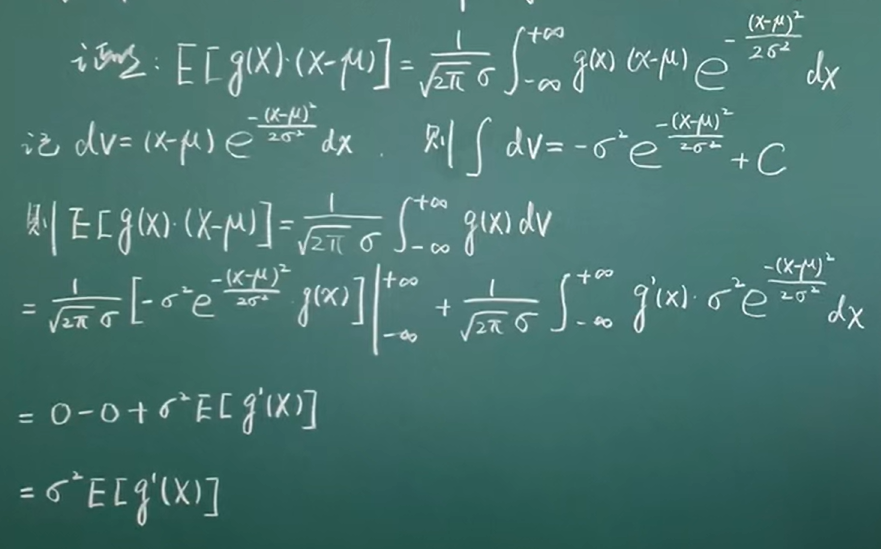 证明: E[g(X)·(X-μ)] = \frac{1}{\sqrt{2π}σ} ∫_{-∞}^{+∞} g(x) (x-μ) e^{-\frac{(x-μ)^2}{2σ^2}} dx
记 dv = (x-μ) e^{-\frac{(x-μ)^2}{2σ^2}} dx . 则 ∫ dv = -σ^2 e^{-\frac{(x-μ)^2}{2σ^2}} + C
则 E[g(X)·(X-μ)] = \frac{1}{\sqrt{2π}σ} ∫_{-∞}^{+∞} g(x) dv
= \frac{1}{\sqrt{2π}σ} [-σ^2 e^{-\frac{(x-μ)^2}{2σ^2}} · g(x)] |_{-∞}^{+∞} + \frac{1}{\sqrt{2π}σ} ∫_{-∞}^{+∞} g'(x) · σ^2 e^{-\frac{(x-μ)^2}{2σ^2}} dx
= 0 - 0 + σ^2 E[g'(X)]
= σ^2 E[g'(X)]